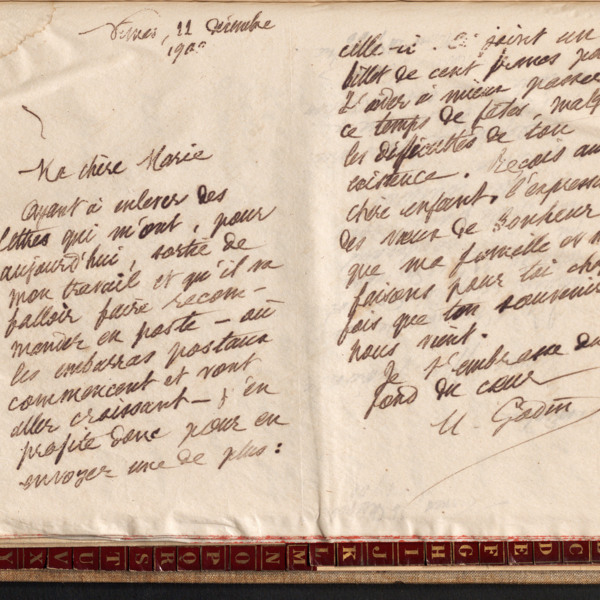 22 décembre
Ma chère Marie
Ayant à enlever des
lettres qui m'ont, pour
aujourd'hui, sortie de
mon travail et qu'il va
falloir faire recom-
mander en poste – où
les embarras postaux
commencent et vont
aller croissant – j'en
profite donc pour en
envoyer une de plus :
celle-ci. Ci joint un
billet de cent francs
t'aider à mieux passer
ce temps de fêtes,
les difficultés de ton
existence. Reçois
chère enfant, l'express
des vœux de Bonheur
que ma famille et
faisons pour toi
fois que ton souvenir
nous vient.
Je t'embrasse du
fond du cœur
Godin
Y X V U T S R Q P O N M L K J I H G F E D C